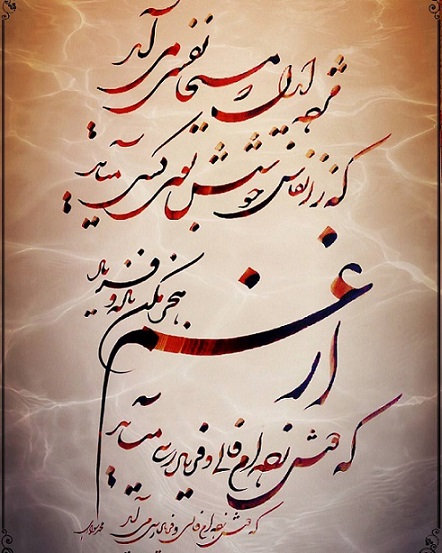 مژده ایدل که مسیحا نفسی می آید
که ز انفاس خوشش بوی کسی میآید
از غم هجر مکن ناله و فریاد
که دوش زده ام فالی و فریاد رسی میآید
که دوش زده ام فالی و فریاد رسی می آید